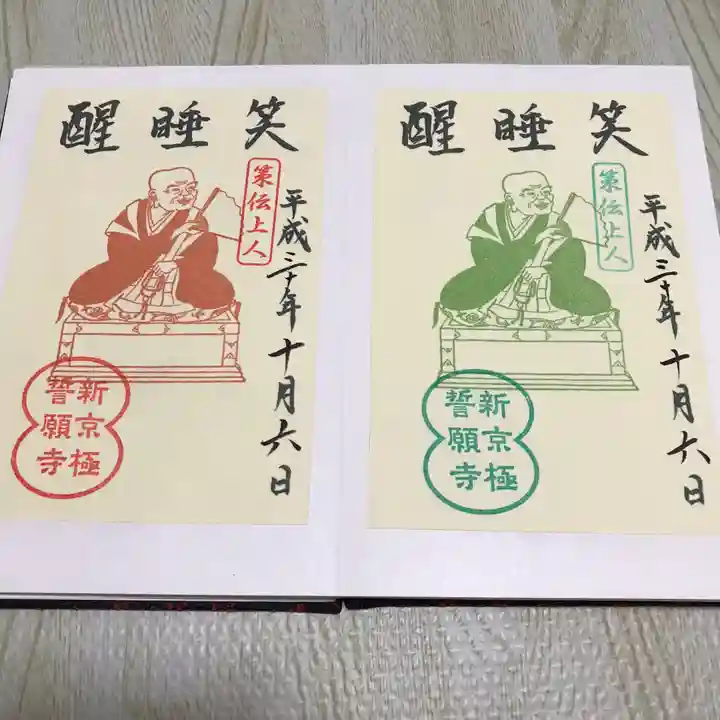 醒睡笑
策伝上人
平成三十年十月六日
新京極
誓願寺
醒睡笑
策伝上人
平成三十年十月六日
新京極
誓願寺